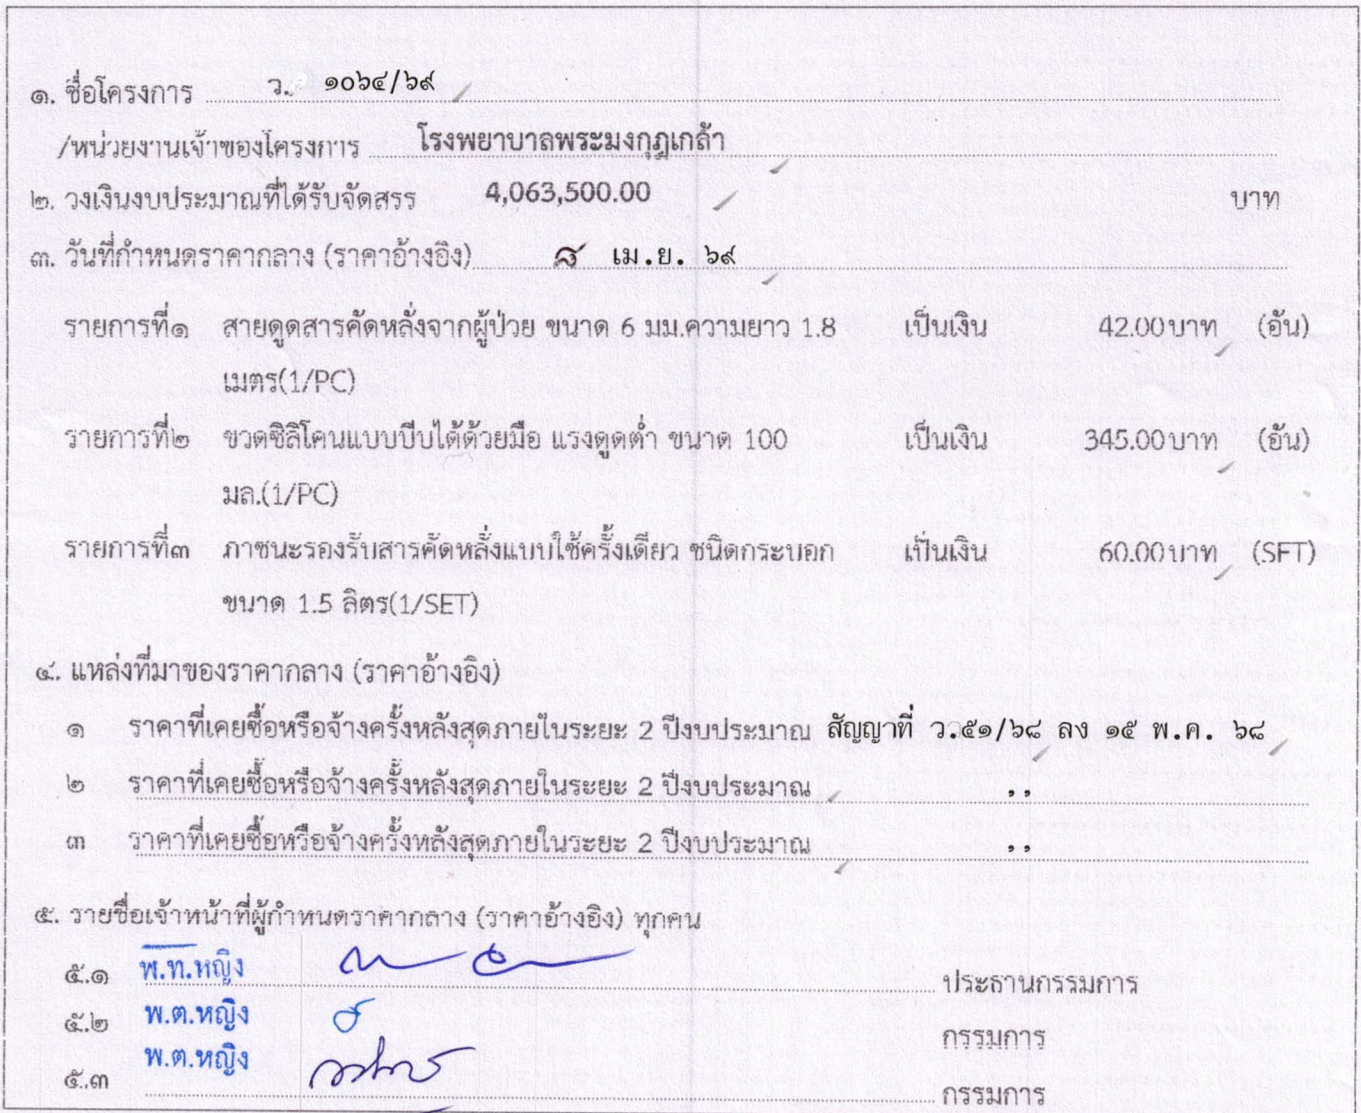 ๑. ชื่อโครงการ ว. ๑๐๖๔/๖๙
/หน่วยงานเจ้าของโครงการ โรงพยาบาลพระมงกุฎเกล้า
๒. วงเงินงบประมาณที่ได้รับจัดสรร 4,063,500.00 บาท
๓. วันที่กำหนดราคากลาง (ราคาอ้างอิง) ๘ เม.ย. ๖๙
รายการที่๑ สายดูดสารคัดหลั่งจากผู้ป่วย ขนาด 6 มม.ความยาว 1.8 เป็นเงิน 42.00บาท (อัน)
เมตร(1/PC)
รายการที่๒ ขวดซิลิโคนแบบบีบได้ด้วยมือ แรงดูดต่ำ ขนาด 100 เป็นเงิน 345.00บาท (อัน)
มล.(1/PC)
รายการที่๓ ภาชนะรองรับสารคัดหลั่งแบบใช้ครั้งเดียว ชนิดกระบอก เป็นเงิน 60.00บาท (SET)
ขนาด 1.5 ลิตร(1/SET)
๔. แหล่งที่มาของราคากลาง (ราคาอ้างอิง)
๑ ราคาที่เคยซื้อหรือจ้างครั้งหลังสุดภายในระยะ 2 ปีงบประมาณ สัญญาที่ ว.๕๑/๖๘ ลง ๑๕ พ.ค. ๖๘
๒ ราคาที่เคยซื้อหรือจ้างครั้งหลังสุดภายในระยะ 2 ปีงบประมาณ ,,
๓ ราคาที่เคยซื้อหรือจ้างครั้งหลังสุดภายในระยะ 2 ปีงบประมาณ ,,
๕. รายชื่อเจ้าหน้าที่ผู้กำหนดราคากลาง (ราคาอ้างอิง) ทุกคน
๕.๑ พ.ท.หญิง ประธานกรรมการ
๕.๒ พ.ต.หญิง กรรมการ
๕.๓ พ.ต.หญิง กรรมการ